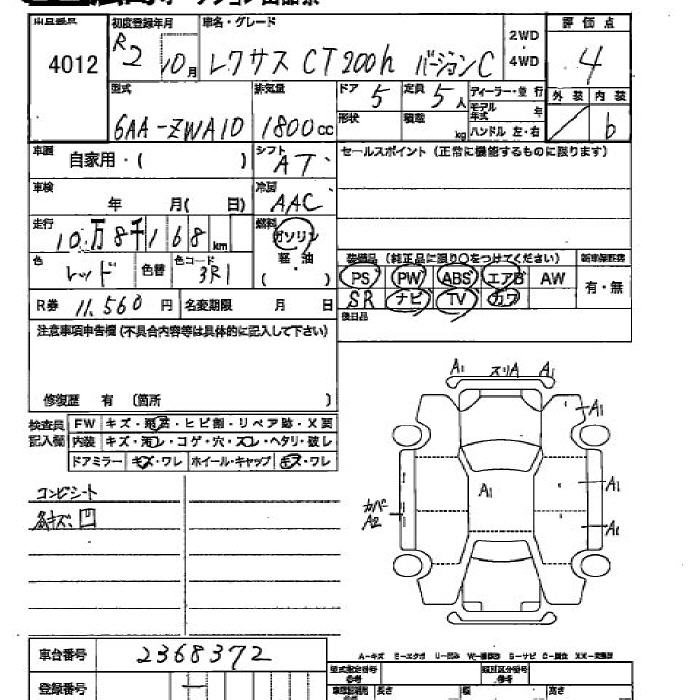 4012
初度登録年月
R2 10月
車名・グレード
レクサス CT200h バージョンC
2WD
4WD
評価点
4
外装 内装
b
型式
6AA-ZWA10
排気量
1800cc
ドア 5
定員 5人
形状
積載 kg
ディーラー・並行
モデル年式 年
ハンドル 左・右
車歴 自家用・( )
シフト AT
セールスポイント (正常に機能するものに限ります)
車検 年 月( 日)
冷房 AAC
走行 10万8千168km
燃料 ガソリン
軽・油
( ・ )
色 レッド
色替
色コード 3R1
装備品 (純正品に限り○をつけてください)
PS PW ABS エアB AW
SR ナビ TV カワ
有・無
R券 11,560円
名変期限 月 日
後日品
注意事項申告欄(不具合内容等は具体的に記入して下さい)
修復歴 有 〔箇所 〕
検査員
記入欄
FW キズ・飛石・ヒビ割・リペア跡・X要
内装 キズ・汚レ・コゲ・穴・スレ・ヘタリ・破レ
ドアミラー キズ・ワレ ホイール・キャップ キズ・ワレ
コンビシート
各キズ、凹
A1 スリA A1
A1
A1
A1
A1
カベ
A2
車台番号 2368372
登録番号
型式指定番号
類別区分番号
長さ 幅 高さ